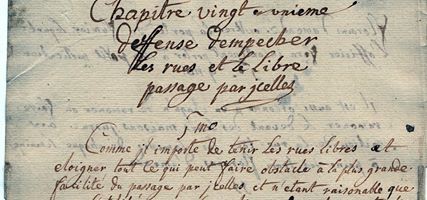 Chapitre vingt e unieme
deffense dempecher
les rues et le libre
passage par jcelles
1mo
Comme il importe de tenir les rues libres et
eloigner tout le qui peut faire obstacle à la plus grande
facilité du passage par jcelles, et n'etant raisonable que